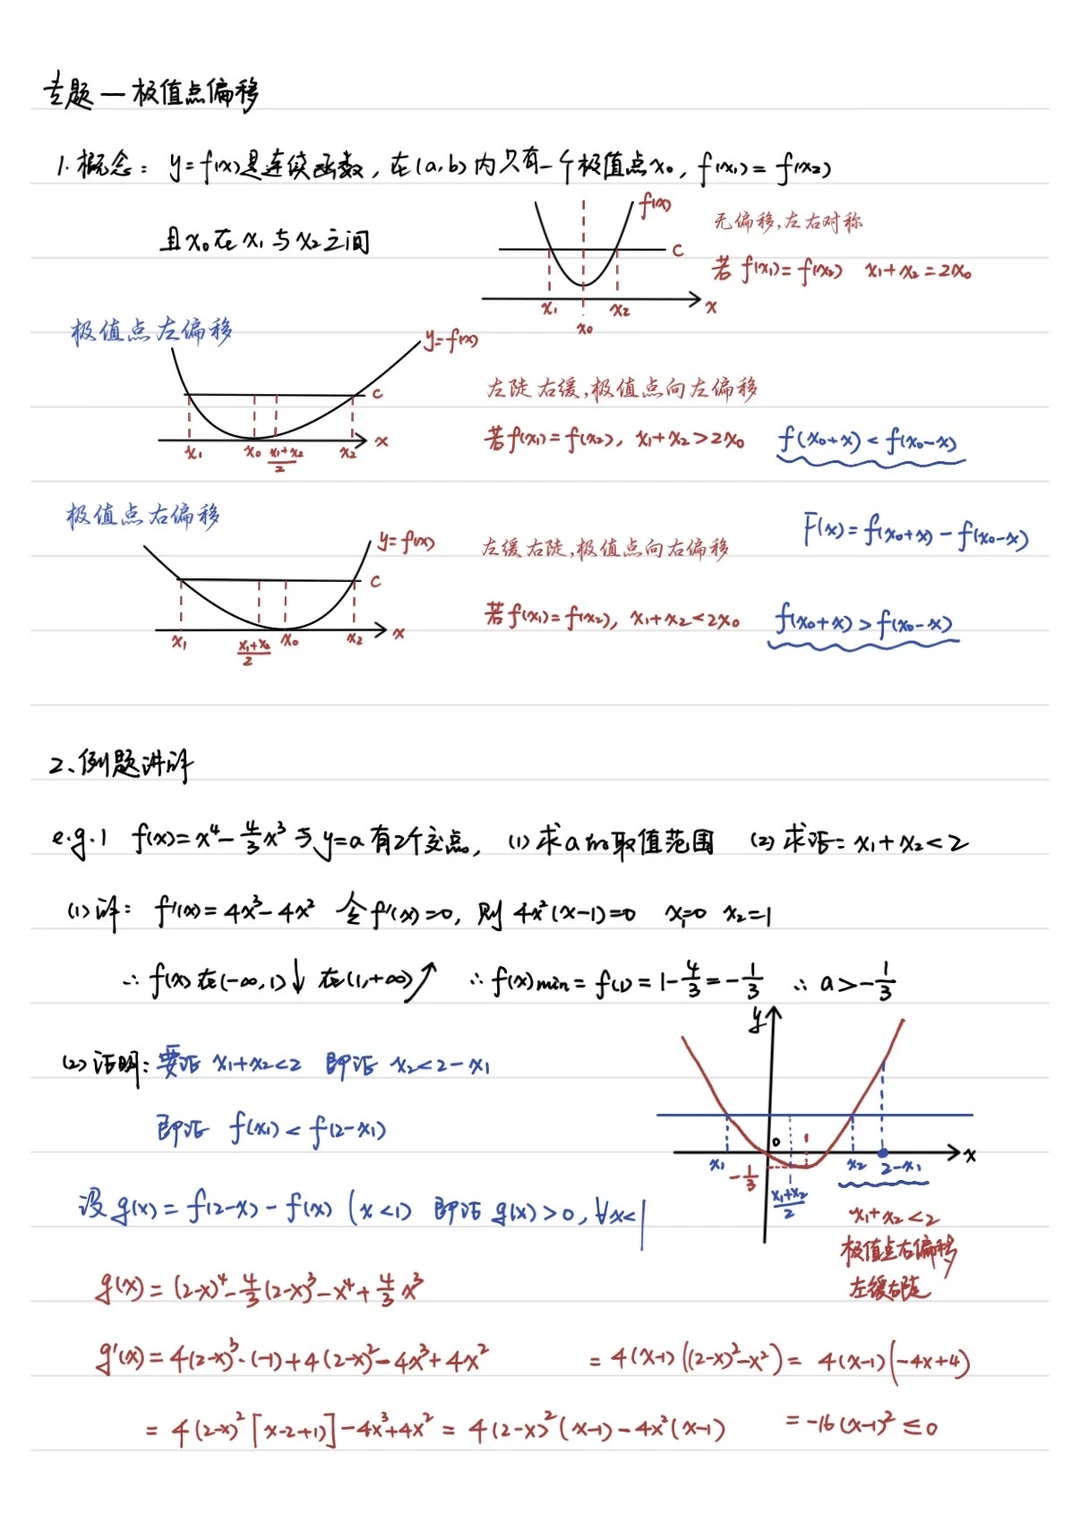 专题一 极值点偏移
1. 概念: y=f(x)是连续函数, 在(a,b)内只有一个极值点x₀, f(x₁)=f(x₂)
且x₀在x₁与x₂之间
f(x)
C
x₁ x₂ x
x₀
无偏移,左右对称
若 f(x₁)=f(x₂) x₁+x₂=2x₀
极值点左偏移
y=f(x)
C
x₁ x₀ (x₁+x₂)/2 x₂ x
左陡右缓,极值点向左偏移
若f(x₁)=f(x₂), x₁+x₂>2x₀ f(x₀+x)<f(x₀-x)
极值点右偏移
y=f(x)
C
x₁ (x₁+x₂)/2 x₀ x₂ x
F(x)=f(x₀+x)-f(x₀-x)
左缓右陡,极值点向右偏移
若f(x₁)=f(x₂), x₁+x₂<2x₀ f(x₀+x)>f(x₀-x)
2、例题讲评
e.g.1 f(x)=x⁴-4/3x³与y=a有2个交点, (1)求a的取值范围 (2)求证: x₁+x₂<2
(1)评: f'(x)=4x³-4x² 令f'(x)=0, 则 4x²(x-1)=0 x₁=0 x₂=1
∴ f(x)在(-∞,1)↓ 在(1,+∞)↗ ∴ f(x)min=f(1)=1-4/3=-1/3 ∴ a>-1/3
(2)证明: 要证 x₁+x₂<2 即证 x₂<2-x₁
即证 f(x₁)<f(2-x₁)
y
0 1 x
x₁ x₂ 2-x₁
-1/3
(x₁+x₂)/2
x₁+x₂<2
极值点右偏移
左缓右陡
设g(x)=f(2-x)-f(x) (x<1) 即证 g(x)>0, ∀x<1
g(x)=(2-x)⁴-4/3(2-x)³-x⁴+4/3x³
g'(x)=4(2-x)³·(-1)+4(2-x)²-4x³+4x² =4(x-1)((2-x)²-x²)= 4(x-1)(-4x+4)
=4(2-x)²[x-2+1]-4x³+4x²=4(2-x)²(x-1)-4x²(x-1) =-16(x-1)²≤0